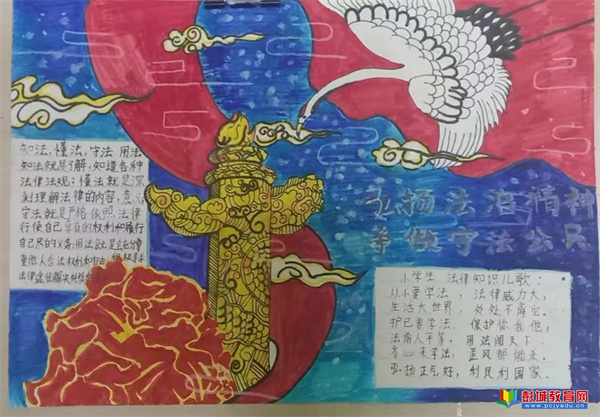 知法,懂法,守法,用法
知法就是了解,知道各种
法律法规;懂法就是深
刻理解法律的内容,意义
守法就是严格依照法律
行使自己享有的权利和履行
自己尽的义务;用法就是
重他人合法权利和自由,
法律
弘扬法治精神
争做守法公民
小学生 法律知识儿歌:
从小要学法, 法律威力大,
生活大世界, 处处不离它。
护己要学法, 保护你我他,
法前人平等, 用法闯天下.
齐心来学法, 歪风都能杀.
弘扬正气好, 利民利国家.
彭城教育网
www.pcjyedu.cn